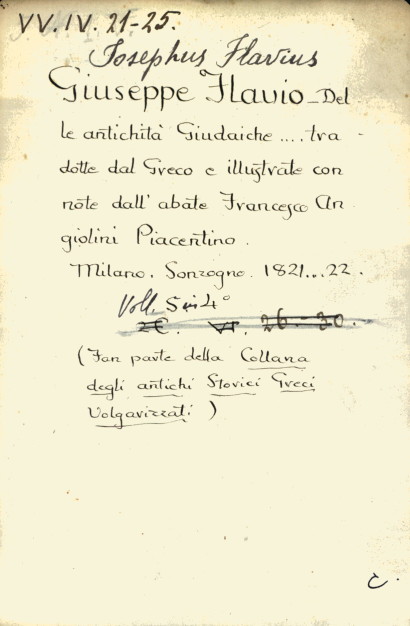 VV. IV. 21-25.
Josephus Flavius
Giuseppe Flavio - Del
le antichità Giudaiche .... tra -
dotte dal Greco e illustrate con
note dall' abate Francesco An
giolini Piacentino .
Milano . Sonzogno . 1821...22 .
Voll. 5 in 4°
26 - 30 .
( Fan parte della Collana
degli antichi Storici Greci
Volgarizzati )
C.